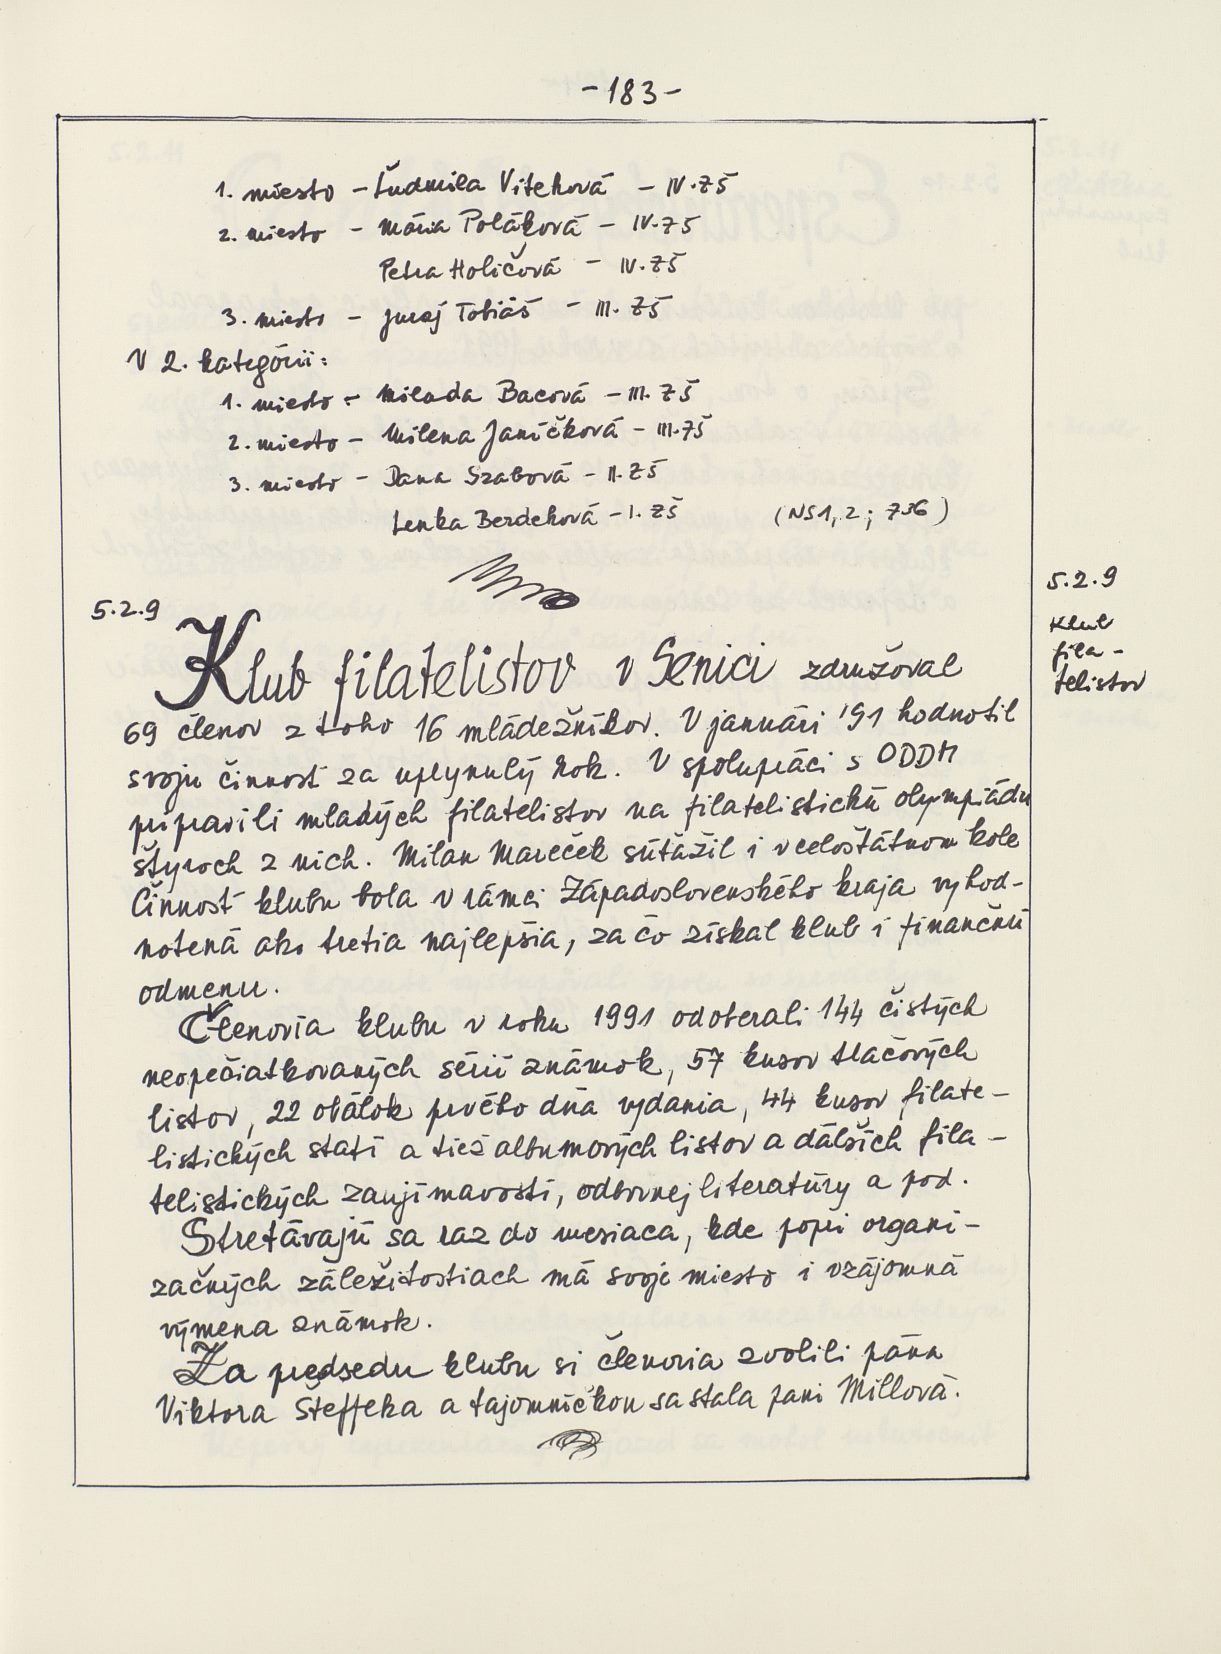 -183-
1. miesto - Ľudmila Viteková - IV. ZŠ
2. miesto - Mária Poláková - IV. ZŠ
Petra Holičová - IV. ZŠ
3. miesto - Juraj Tobiáš - III. ZŠ
V 2. kategórii:
1. miesto - Milada Bacová - III. ZŠ
2. miesto - Milena Janíčková - III. ZŠ
3. miesto - Dana Szabová - II. ZŠ
Lenka Berdeková - I. ZŠ (NS1, 2; 736)
5.2.9
Klub filatelistov v Senici združoval
69 členov z toho 16 mládežníkov. V januári '91 hodnotil
svoju činnosť za uplynulý rok. V spolupráci s ODDM
pripravili mladých filatelistov na filatelistickú olympiádu
štyroch z nich. Milan Mareček súťažil i v celoštátnom kole
Činnosť klubu bola v rámci Západoslovenského kraja vyhod-
notená ako tretia najlepšia, za čo získal klub i finančnú
odmenu.
Členovia klubu v roku 1991 odoberali 144 čistých
neopečiatkovaných sérií známok, 57 kusov tlačových
listov, 22 obálok prvého dňa vydania, 44 kusov filate-
listických statí a tiež albumových listov a dálších fila-
telistických zaujímavostí, odbornej literatúry a pod.
Stretávajú sa raz do mesiaca, kde popri organi-
začných záležitostiach má svoje miesto i vzájomná
výmena známok.
Za predsedu klubu si členovia zvolili pána
Viktora Šteffeka a tajomníčkou sa stala pani Millová.
5.2.9
Klub
fila-
telistov